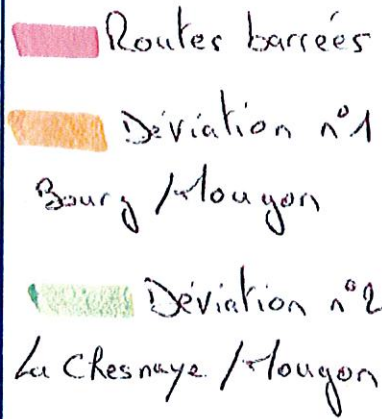 Routes barrées
Déviation n°1
Bourg / Mougon
Déviation n°2
La Chesnaye / Mougon